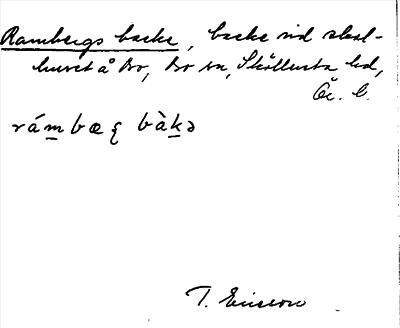 Rambergs backe, backe vid skol-
huset å Bo, Bo sn, Sköllersta hd,
Ör. l.
rámbæʂ bàkə
T. Ericsson